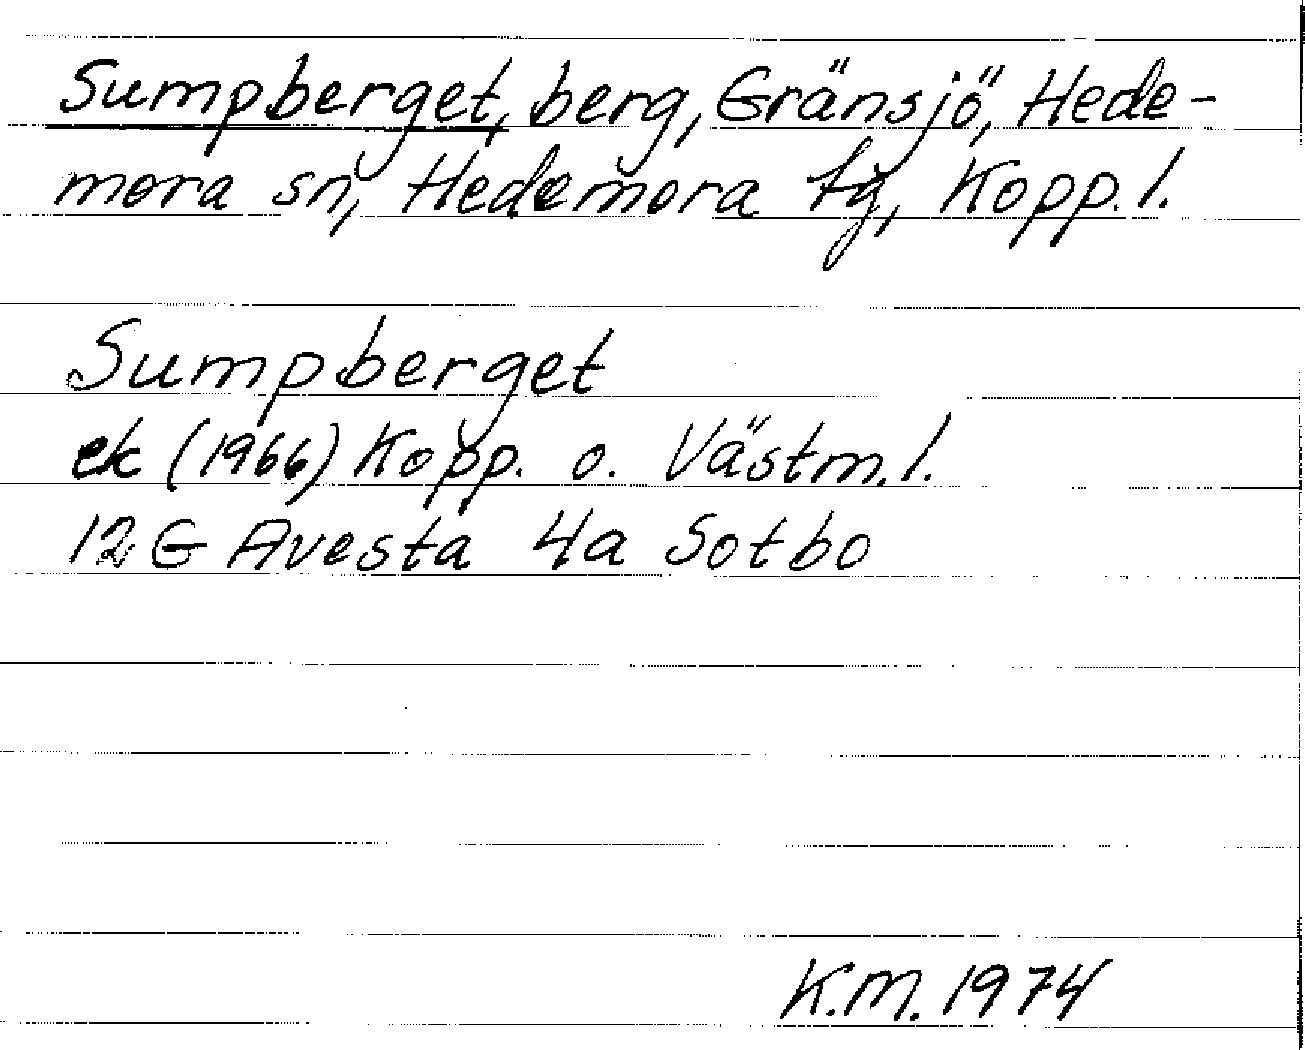 Sumpberget, berg, Gränsjö, Hede-
mora sn, Hedemora tg, Kopp. l.
Sumpberget
ek (1966) Kopp. o. Västm. l.
12 G Avesta 4a Sotbo
K.M. 1974